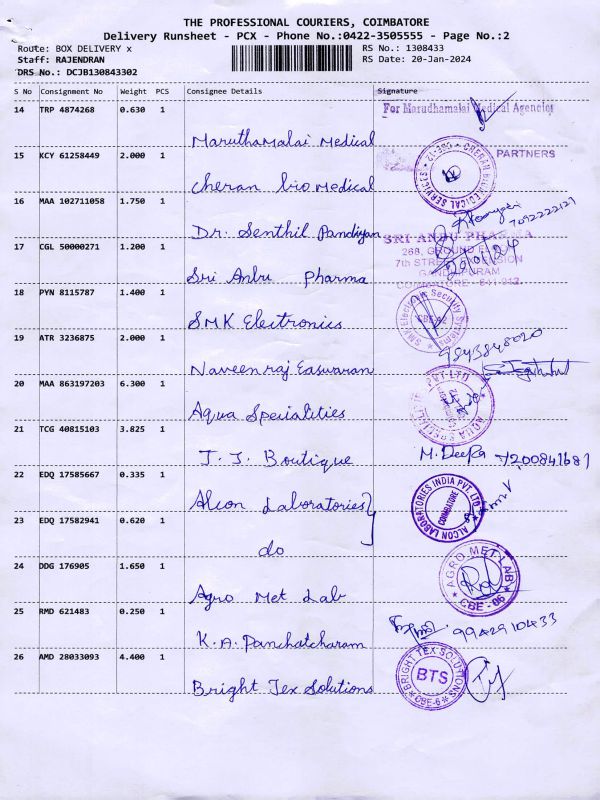 THE PROFESSIONAL COURIERS, COIMBATORE
Delivery Runsheet - PCX - Phone No.:0422-3505555 - Page No.:2
Route: BOX DELIVERY x
RS No.: 1308433
Staff: RAJENDRAN
RS Date: 20-Jan-2024
DRS No.: DCJB130843302
S No Consignment No Weight PCS Consignee Details Signature
14 TRP 4874268 0.630 1
For Marudhamalai Medical Agencies
Maruthamalai Medical
15 KCY 61258449 2.000 1
PARTNERS
CHERAN BIOMEDICAL SERVICES
Cheran bio Medical
16 MAA 102711058 1.750 1
7092222127
Dr. Senthil Pandiyan
17 CGL 50000271 1.200 1
SRI ANBU PHARMA
268, GROUND
7th STREET
20/01/24
Sri Anbu Pharma
COIMBATORE
18 PYN 8115787 1.400 1
SMK Electronic Security Systems
CBE
SMK Electronics
19 ATR 3236875 2.000 1
9843848020
Naveenraj Easwaran
20 MAA 863197203 6.300 1
PVT LTD
AQUA
Aqua Specialities
21 TCG 40815103 3.825 1
M. Deepa 7200841681
J. J. Boutique
22 EDQ 17585667 0.335 1
ALCON LABORATORIES INDIA PVT. LTD.
COIMBATORE
Alcon Laboratories
23 EDQ 17582941 0.620 1
do
24 DDG 176905 1.650 1
AGRO MET LAB
CBE - 06
Agro Met Lab
25 RMD 621483 0.250 1
9942910433
K. A. Panchatcharam
26 AMD 28033093 4.400 1
BRIGHT TEX SOLUTIONS
BTS
CBE-6
Bright Tex Solutions